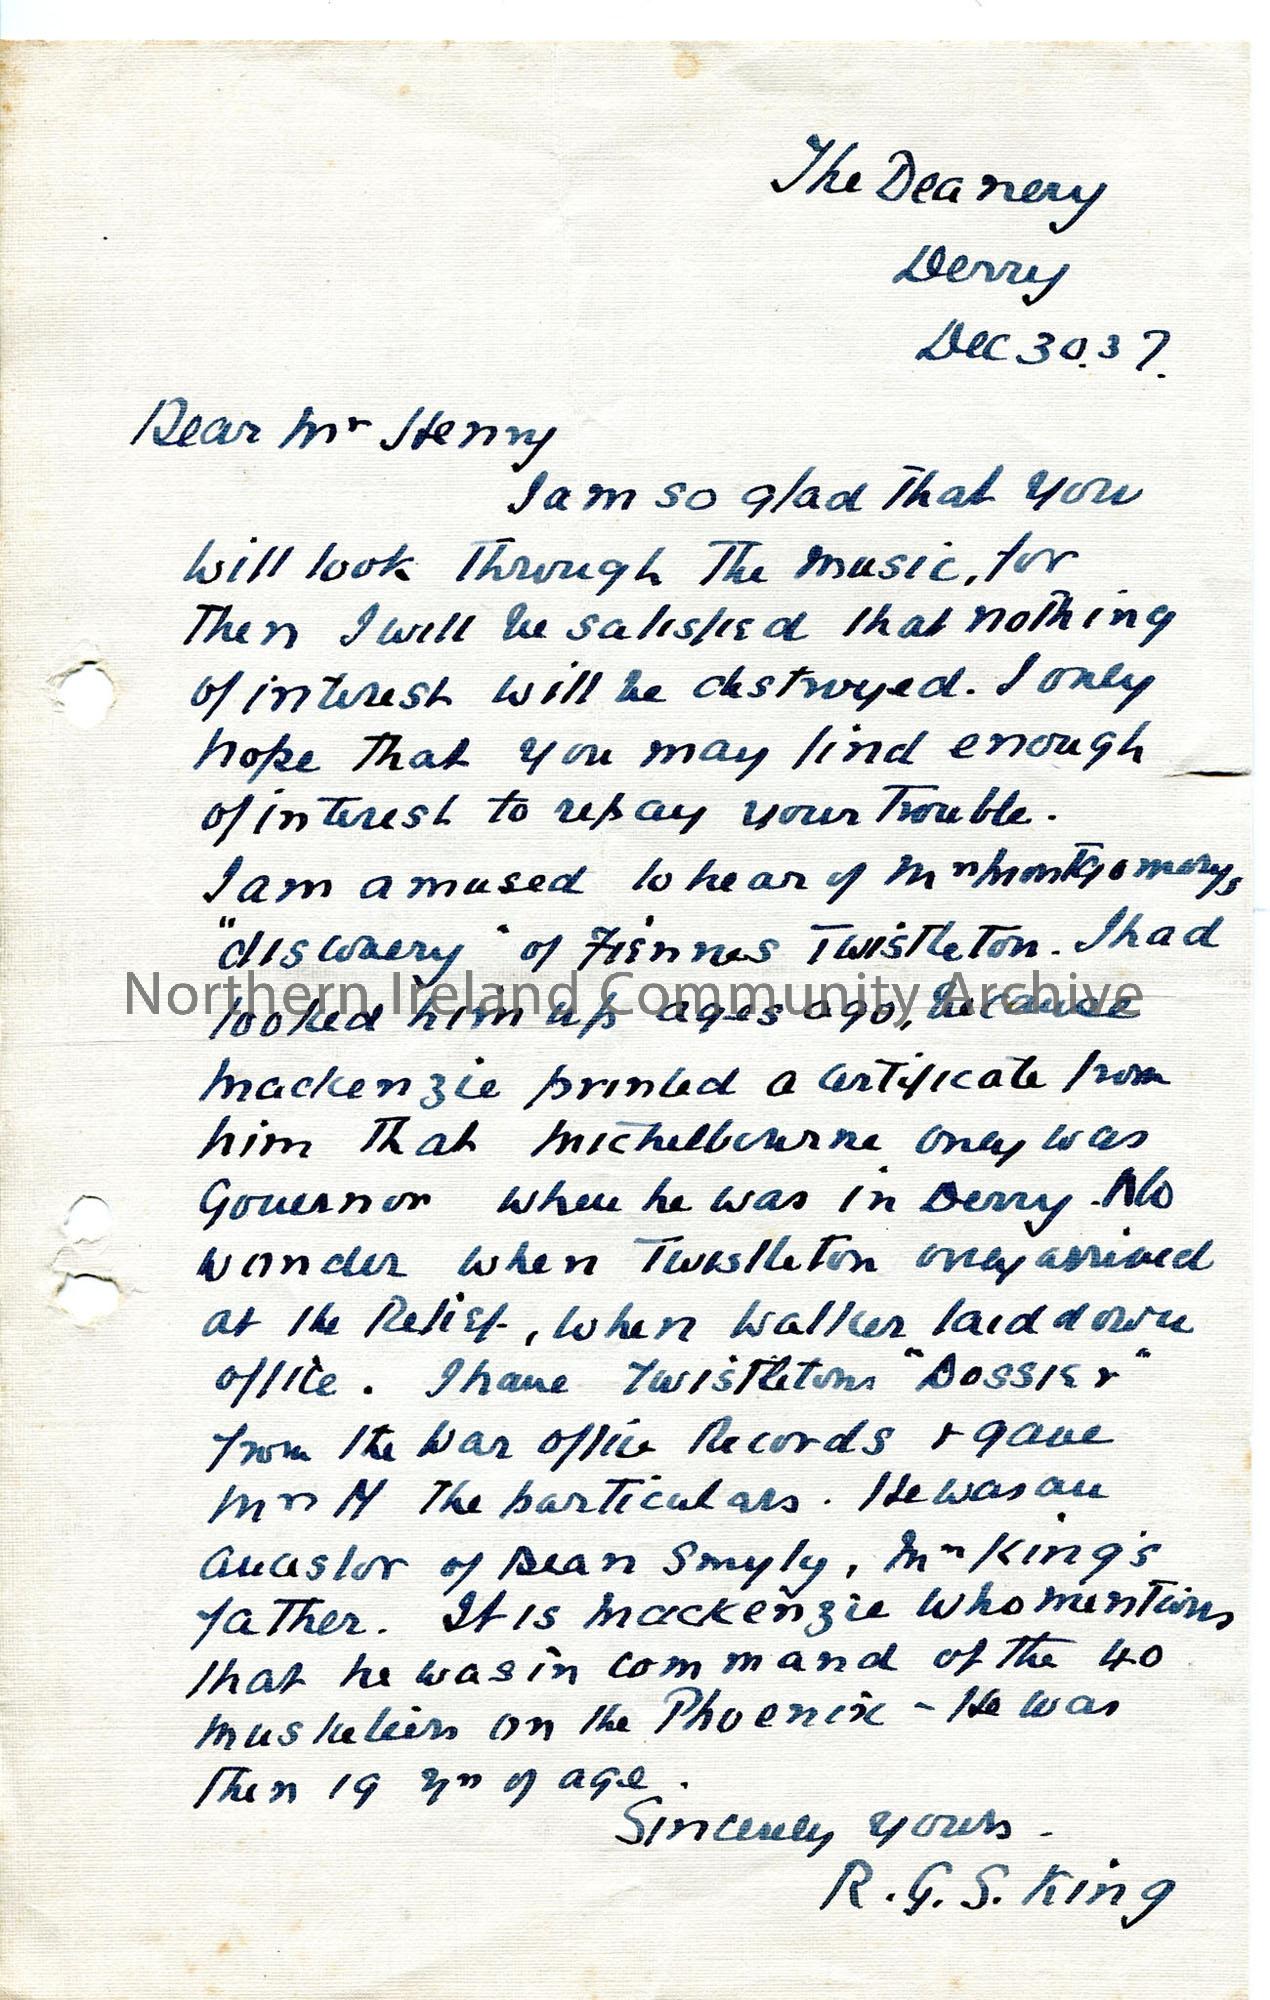 The Deanery
Derry
Dec 30.37.
Dear Mr Henry
I am so glad that you
will look through the music, for
then I will be satisfied that nothing
of interest will be destroyed. I only
hope that you may find enough
of interest to repay your trouble.
I am amused to hear of Mrs Montgomerys
"discovery" of Fiennes Twistleton. I had
looked him up ages ago, because
Mackenzie printed a certificate from
him that Michelbourne only was
Governor when he was in Derry. No
wonder when Twistleton only arrived
at the Relief, when Walker laid down
office. I have Twistletons "Dossier"
from the War Office Records & gave
Mrs M the particulars. He was an
ancestor of Dean Smyly, Mrs King's
father. It is Mackenzie who mentions
that he was in command of the 40
musketeers on the Phoenix - He was
then 19 yrs of age.
Sincerely yours.
R. G. S. King
Northern Ireland Community Archive